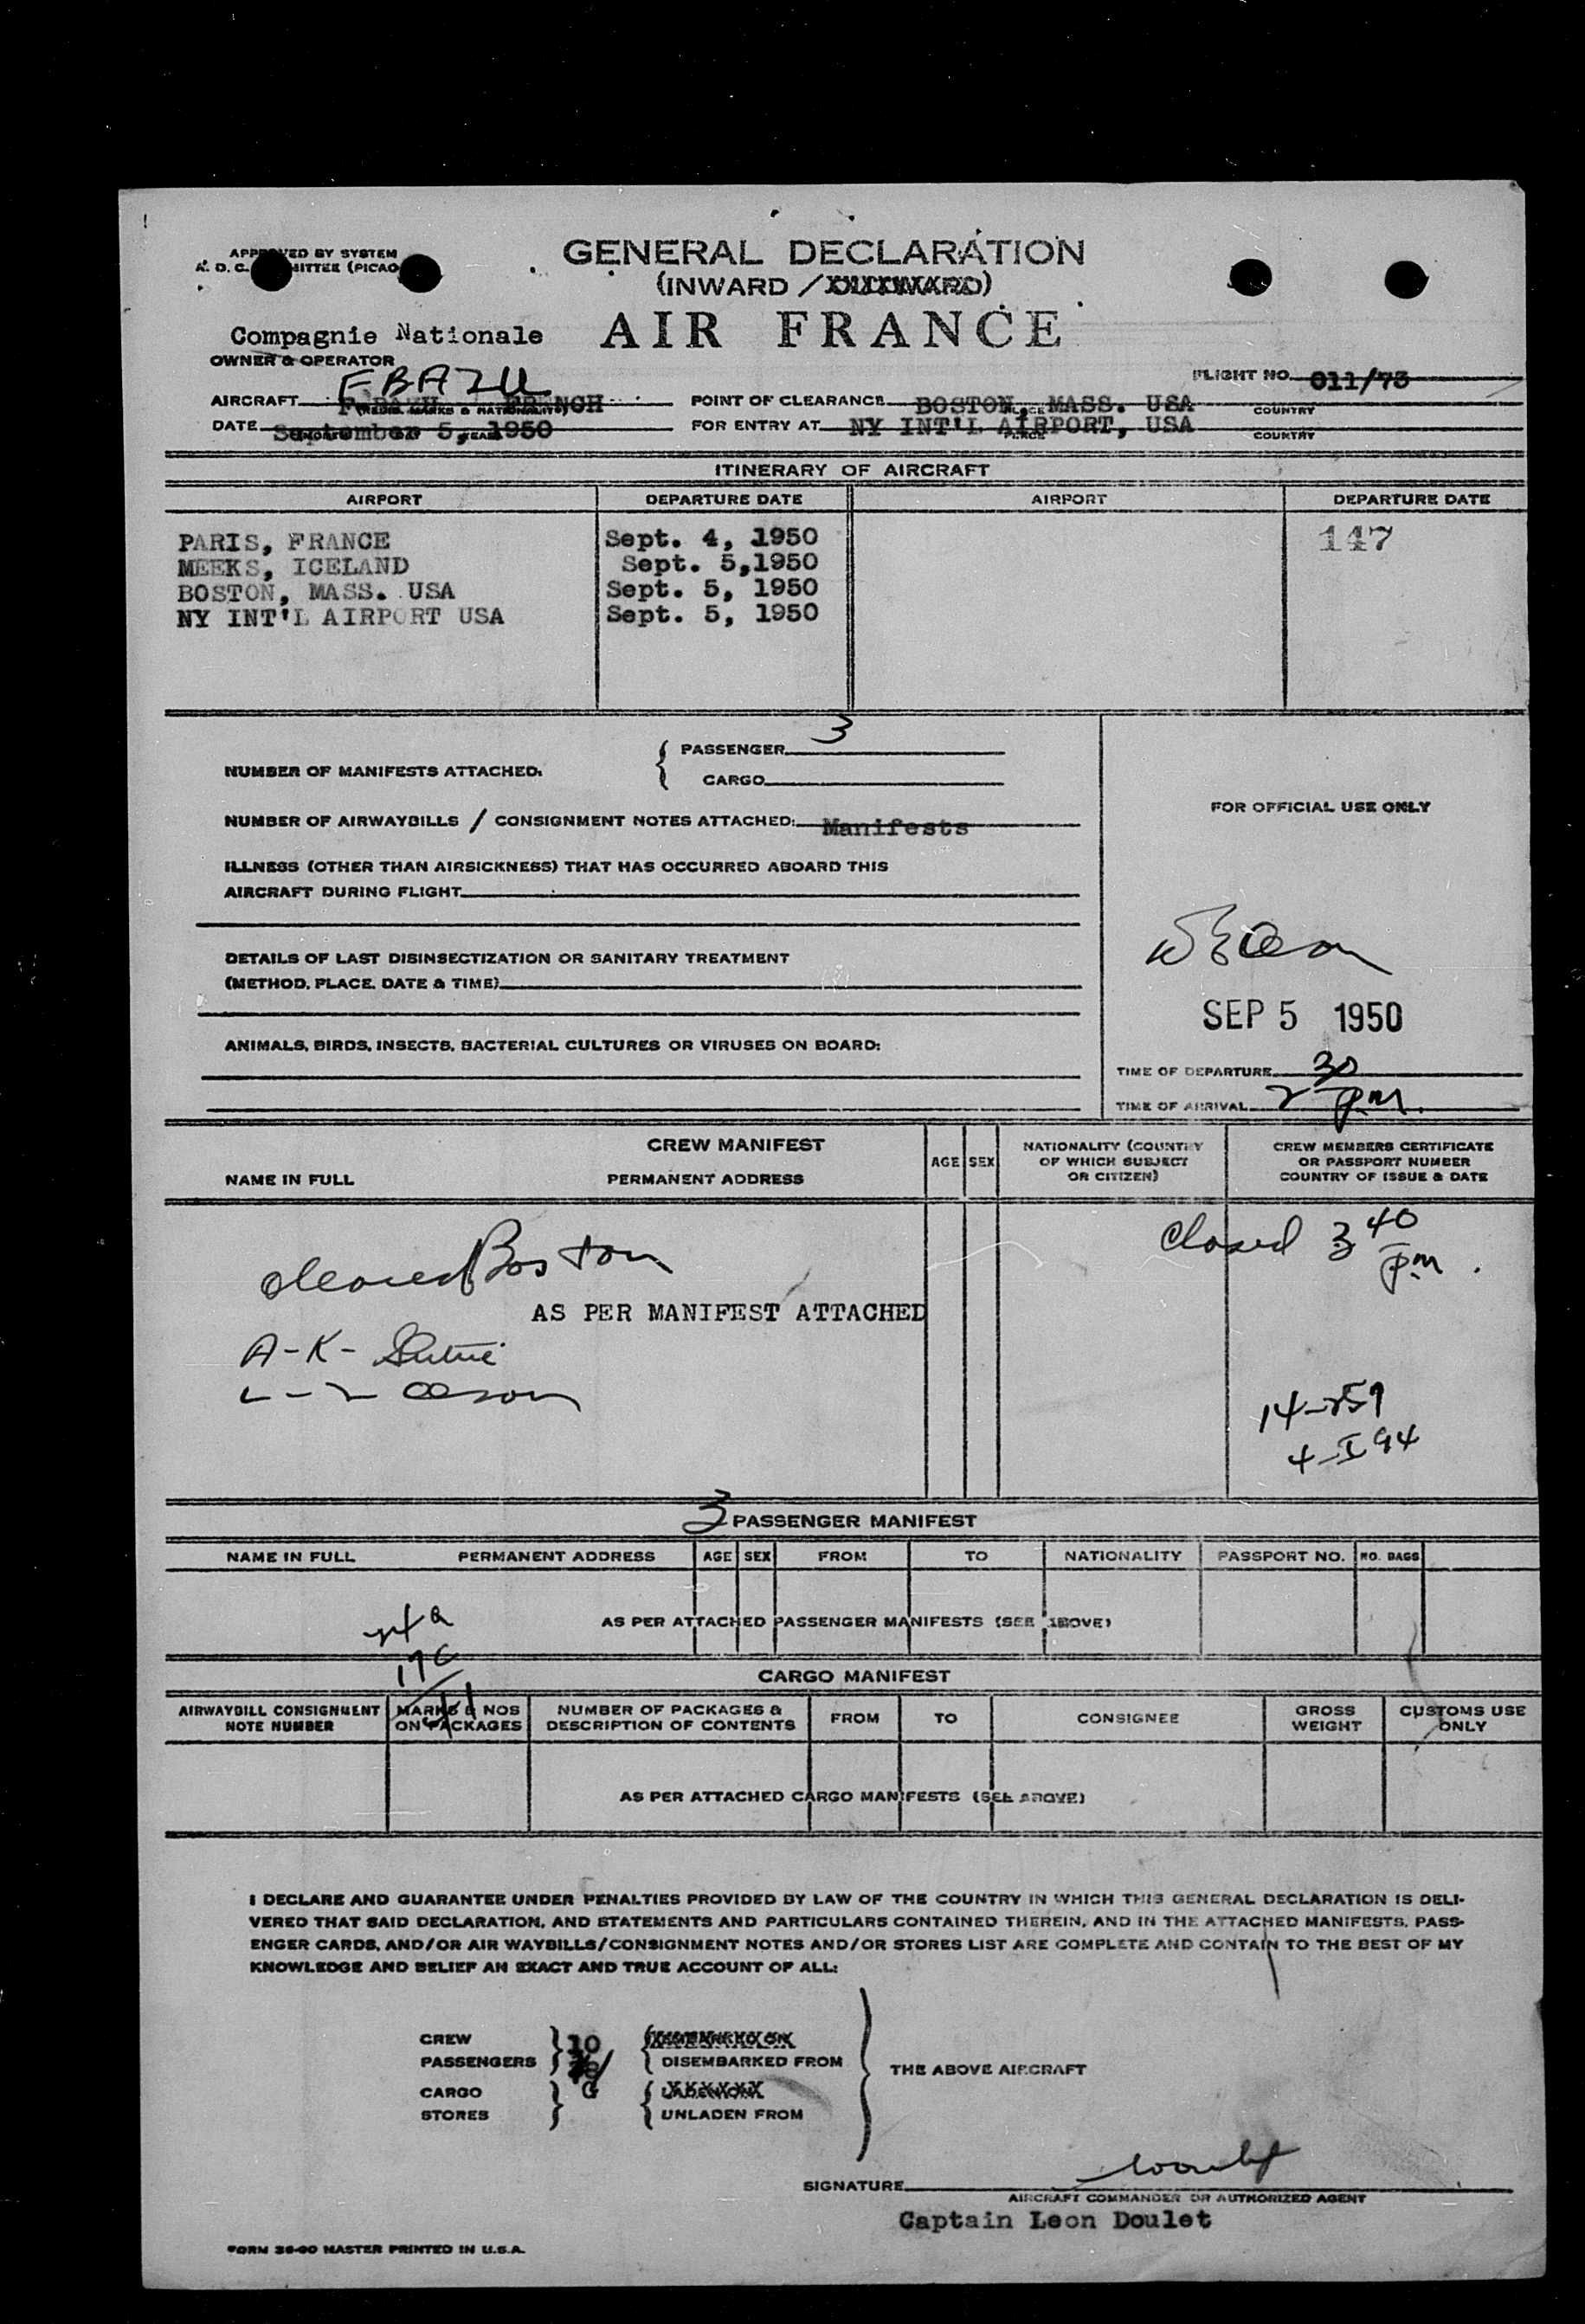 APPROVED BY SYSTEM
A. O. C. COMMITTEE (PICAO
GENERAL DECLARATION
(INWARD / OUTWARD)
Compagnie Nationale AIR FRANCE
OWNER & OPERATOR
FLIGHT NO. 011/73
FBAZU
AIRCRAFT FRENCH POINT OF CLEARANCE BOSTON, MASS. USA
(REGIS. MARKS & NATIONALITY) PLACE COUNTRY
DATE September 5, 1950 FOR ENTRY AT NY INT'L AIRPORT, USA
MONTH DAY YEAR PLACE COUNTRY
ITINERARY OF AIRCRAFT
AIRPORT DEPARTURE DATE AIRPORT DEPARTURE DATE
PARIS, FRANCE Sept. 4, 1950 147
MEEKS, ICELAND Sept. 5,1950
BOSTON, MASS. USA Sept. 5, 1950
NY INT'L AIRPORT USA Sept. 5, 1950
NUMBER OF MANIFESTS ATTACHED: { PASSENGER 3
CARGO
FOR OFFICIAL USE ONLY
NUMBER OF AIRWAYBILLS / CONSIGNMENT NOTES ATTACHED: Manifests
ILLNESS (OTHER THAN AIRSICKNESS) THAT HAS OCCURRED ABOARD THIS
AIRCRAFT DURING FLIGHT
DETAILS OF LAST DISINSECTIZATION OR SANITARY TREATMENT
(METHOD, PLACE, DATE & TIME)
SEP 5 1950
ANIMALS, BIRDS, INSECTS, BACTERIAL CULTURES OR VIRUSES ON BOARD:
TIME OF DEPARTURE
TIME OF ARRIVAL 2 30 pm.
CREW MANIFEST
NAME IN FULL PERMANENT ADDRESS AGE SEX NATIONALITY (COUNTRY
OF WHICH SUBJECT
OR CITIZEN) CREW MEMBERS CERTIFICATE
OR PASSPORT NUMBER
COUNTRY OF ISSUE & DATE
cleared Boston Closed 3 40 pm.
AS PER MANIFEST ATTACHED
A-K-
3 PASSENGER MANIFEST
NAME IN FULL PERMANENT ADDRESS AGE SEX FROM TO NATIONALITY PASSPORT NO. NO. BAGS
AS PER ATTACHED PASSENGER MANIFESTS (SEE ABOVE)
CARGO MANIFEST
AIRWAYBILL CONSIGNMENT
NOTE NUMBER MARKS & NOS
ON PACKAGES NUMBER OF PACKAGES &
DESCRIPTION OF CONTENTS FROM TO CONSIGNEE GROSS
WEIGHT CUSTOMS USE
ONLY
AS PER ATTACHED CARGO MANIFESTS (SEE ABOVE)
I DECLARE AND GUARANTEE UNDER PENALTIES PROVIDED BY LAW OF THE COUNTRY IN WHICH THIS GENERAL DECLARATION IS DELI-
VERED THAT SAID DECLARATION, AND STATEMENTS AND PARTICULARS CONTAINED THEREIN, AND IN THE ATTACHED MANIFESTS, PASS-
ENGER CARDS, AND/OR AIR WAYBILLS/CONSIGNMENT NOTES AND/OR STORES LIST ARE COMPLETE AND CONTAIN TO THE BEST OF MY
KNOWLEDGE AND BELIEF AN EXACT AND TRUE ACCOUNT OF ALL:
CREW 10
PASSENGERS DISEMBARKED FROM
THE ABOVE AIRCRAFT
CARGO
STORES UNLADEN FROM
SIGNATURE
AIRCRAFT COMMANDER OR AUTHORIZED AGENT
Captain Leon Doulet
FORM 36-90 MASTER PRINTED IN U.S.A.